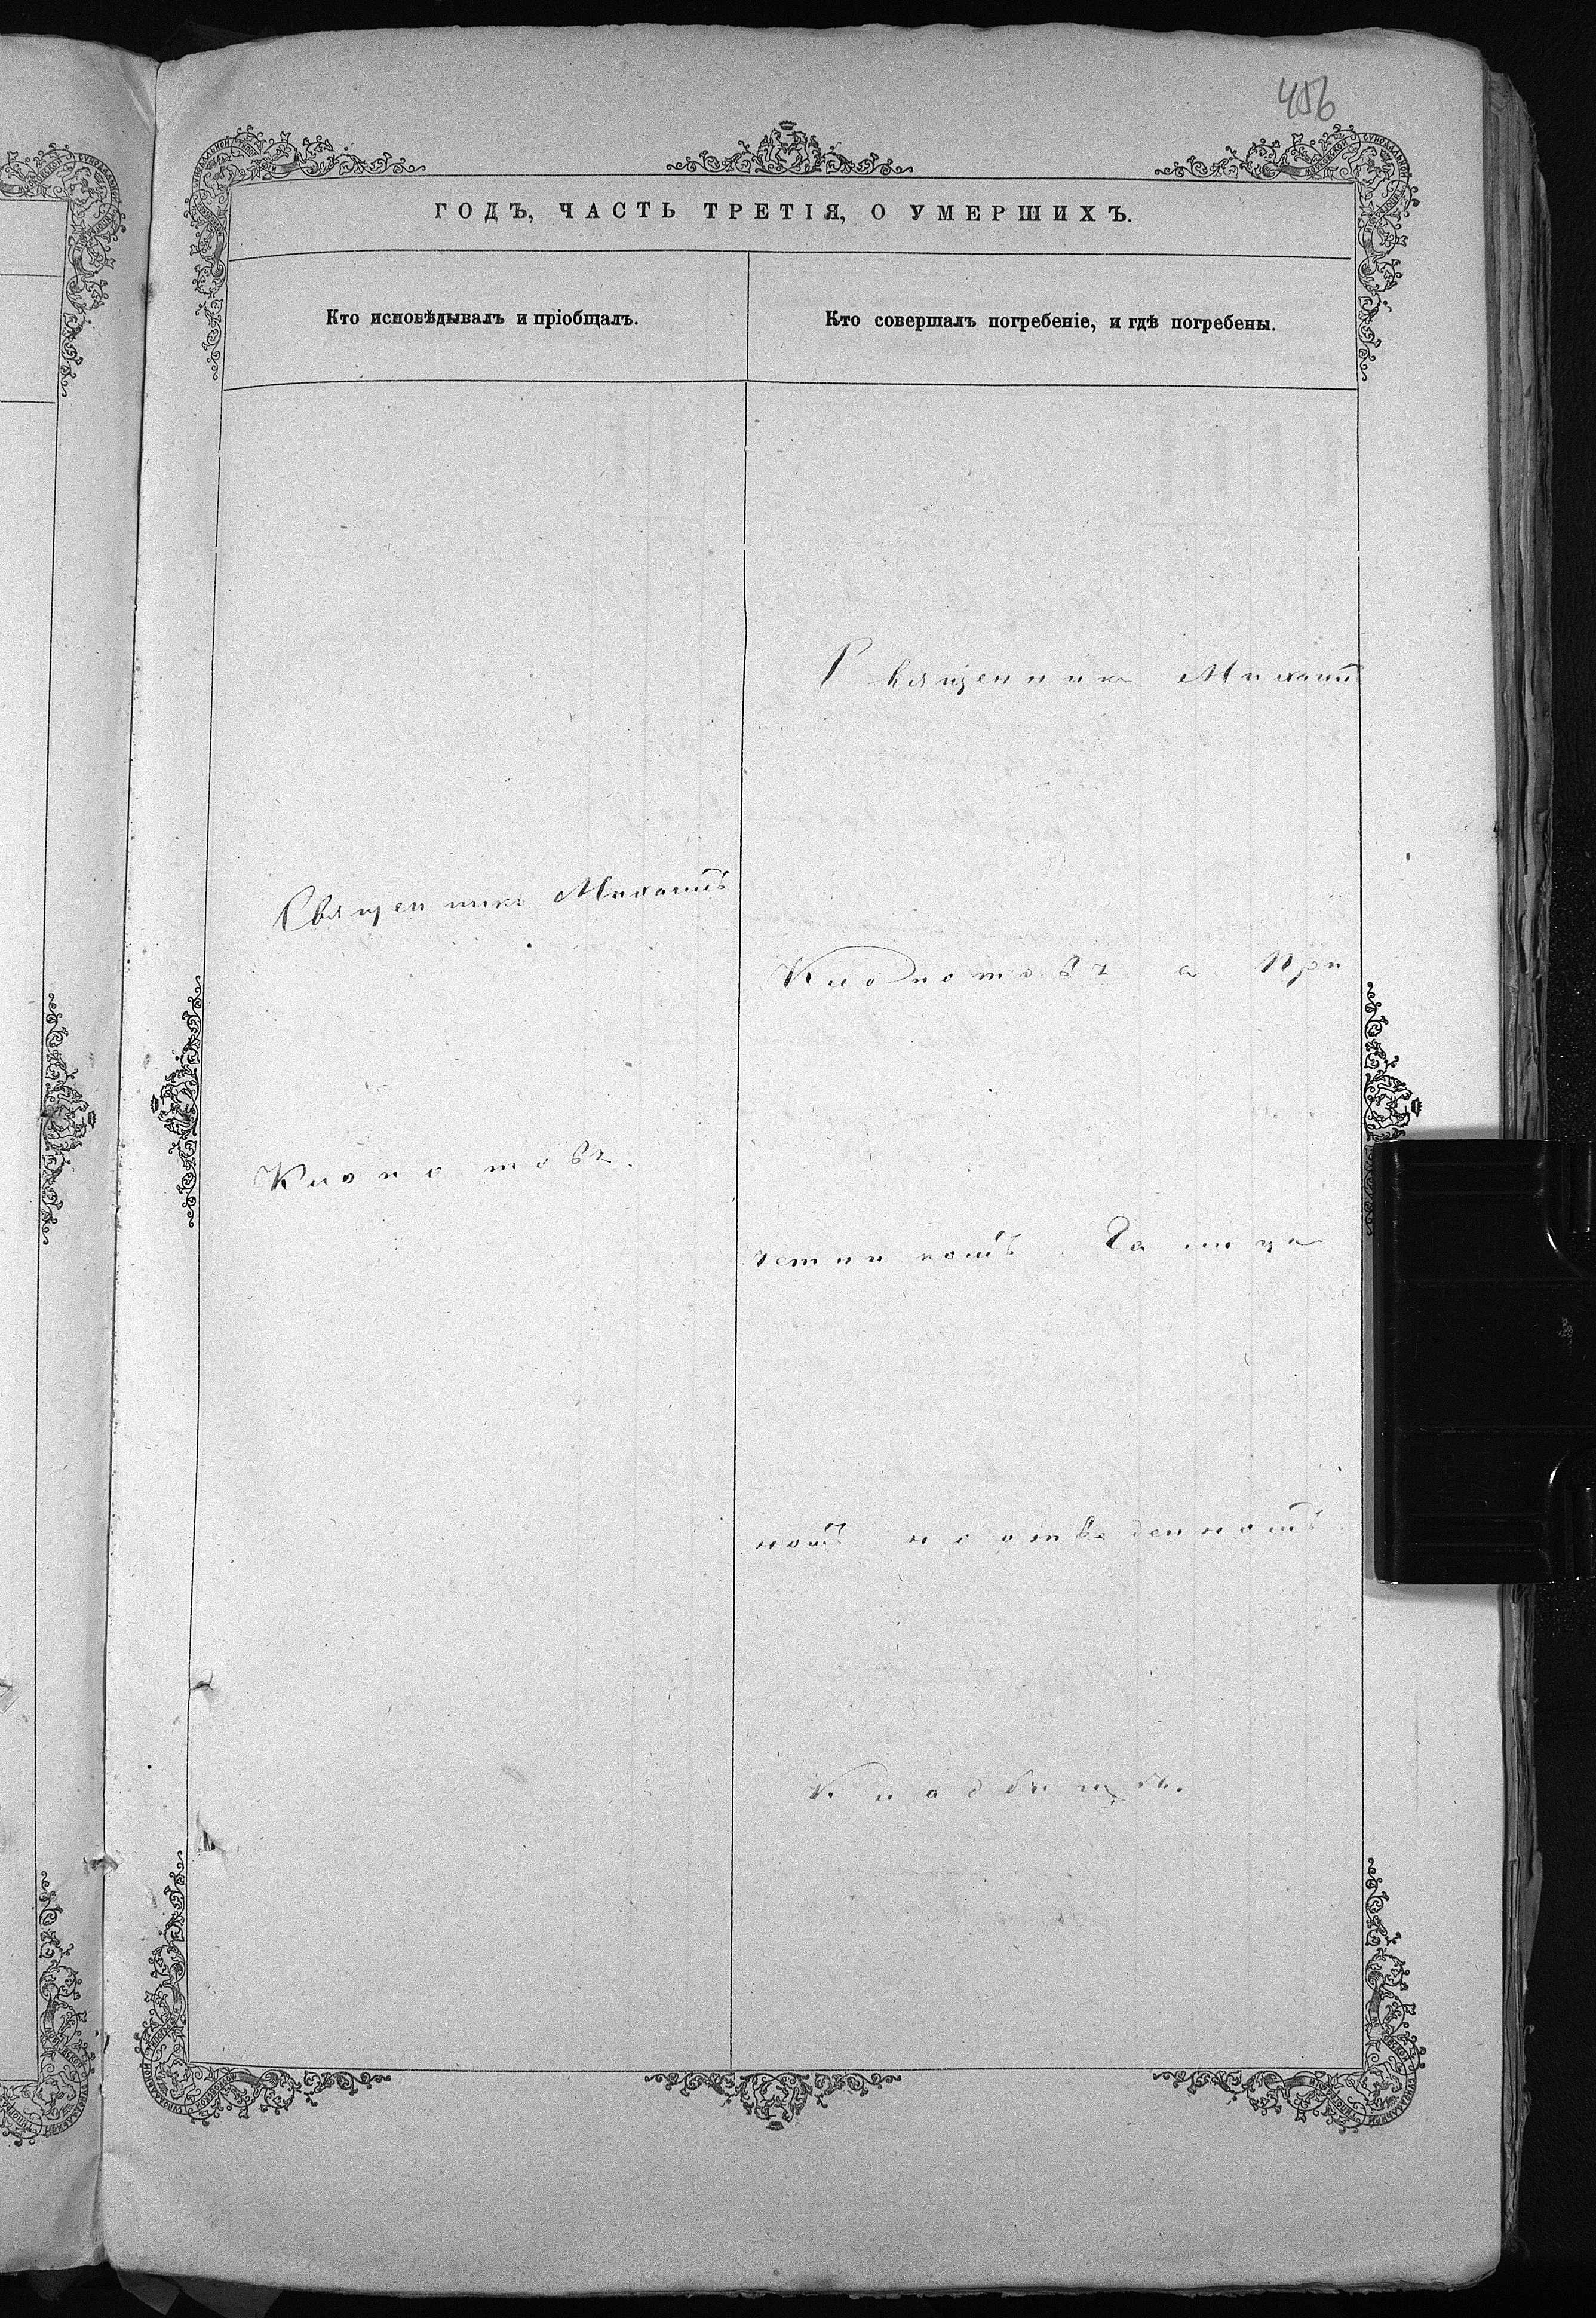 456
ГОДЪ, ЧАСТЬ ТРЕТІЯ, О УМЕРШИХЪ.
Кто исповѣдывалъ и пріобщалъ.
Кто совершалъ погребеніе, и гдѣ погребены.
Священникъ Михаилъ
Священникъ Михаилъ
Клопотовъ
а при
Клопотовъ.
четникомъ
номъ и отведенномъ
Кладбищѣ.